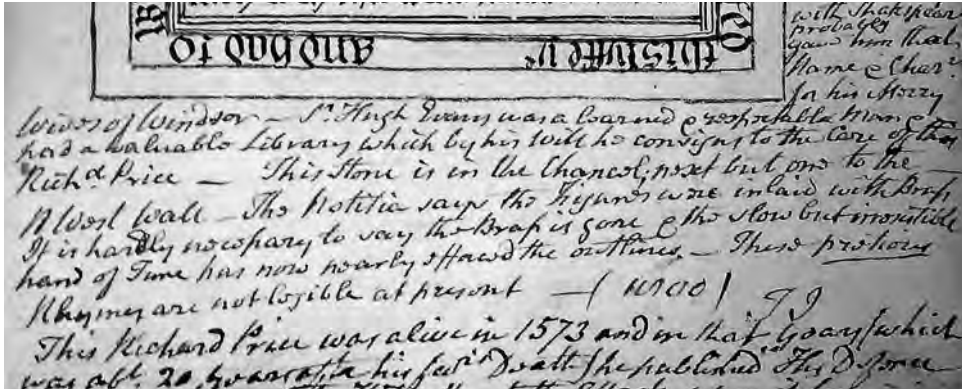 and had to this lyffe
with Shakspear
probably
gave him that
Name & Charr
for his Merry
Wives of Windsor – Sr. Hugh Evans was a learned & respectable man &
had a valuable Library which by his will he consigns to the Care of this
Richd Price — This Stone is in the Chancel, next but one to the
N West Wall – The Notitia says the Figures were inlaid with Brass
It is hardly necessary to say the Brass is gone & the slow but irresistible
hand of Time has now nearly effaced the outlines. – These precious
Rhymes are not legible at present — ( 1800 ) T J
This Richard Price was alive in 1573 and in that year (which
was abt. 20 years after his Death) he published The Defence